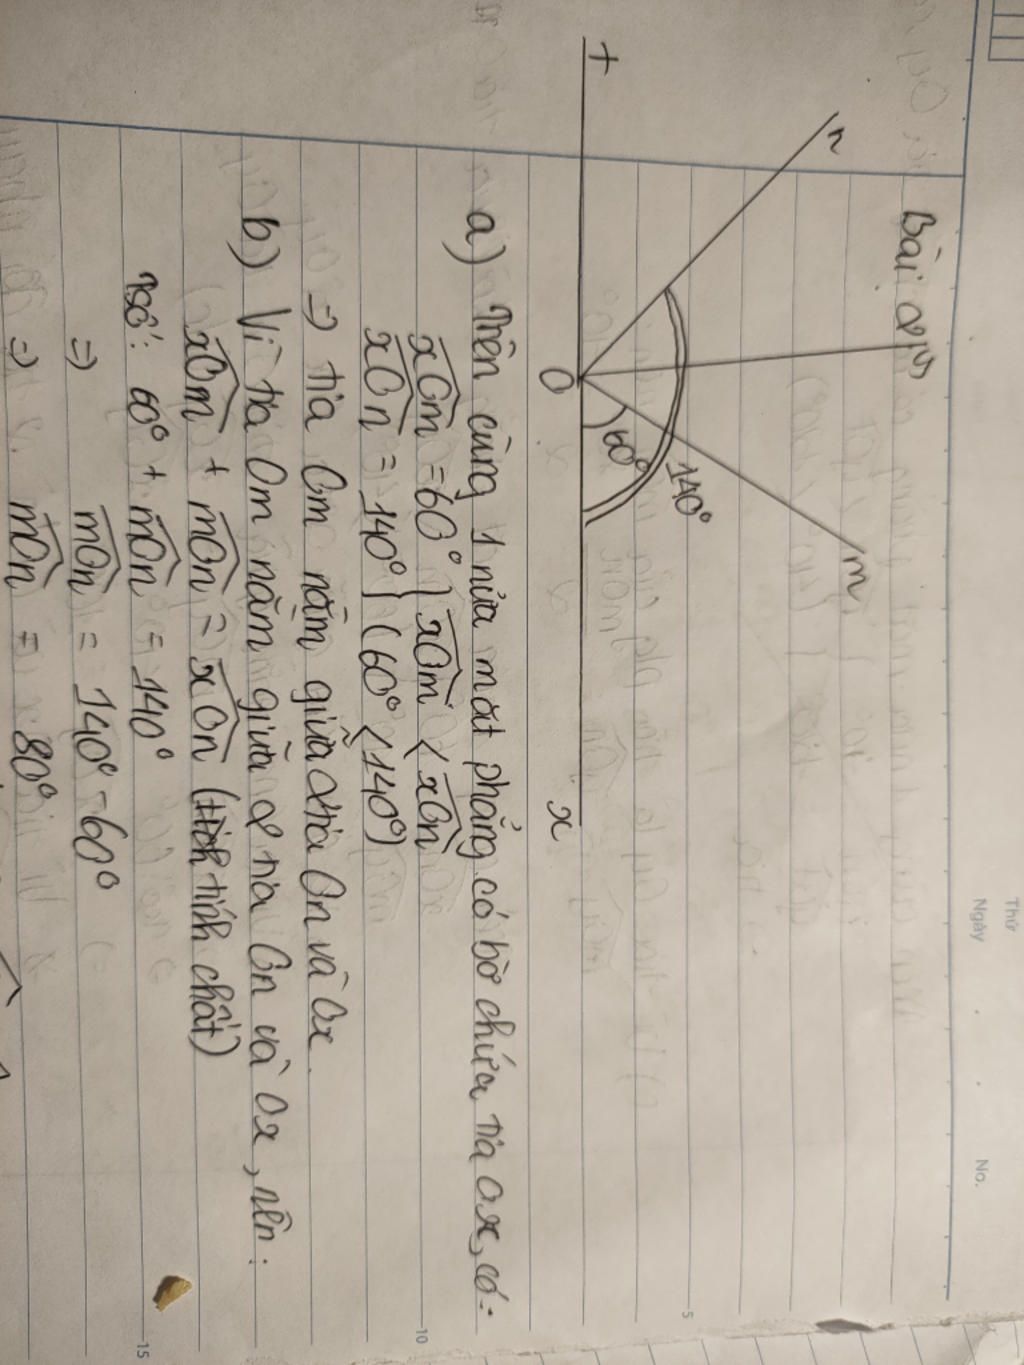 Thứ
Ngày
No.
Bài 2
n
m
140°
60°
t
O
x
5
a) Trên cùng 1 nửa mặt phẳng có bờ chứa tia Ox, có:
xOm = 60° } xOm < xOn
10
xOn = 140° } (60° < 140°)
=> tia Om nằm giữa tia On và Ox.
b) Vì tia Om nằm giữa 2 tia On và Ox, nên:
xOm + mOn = xOn (tính chất)
60° + mOn = 140°
15
=> mOn = 140° - 60°
=> mOn = 80°